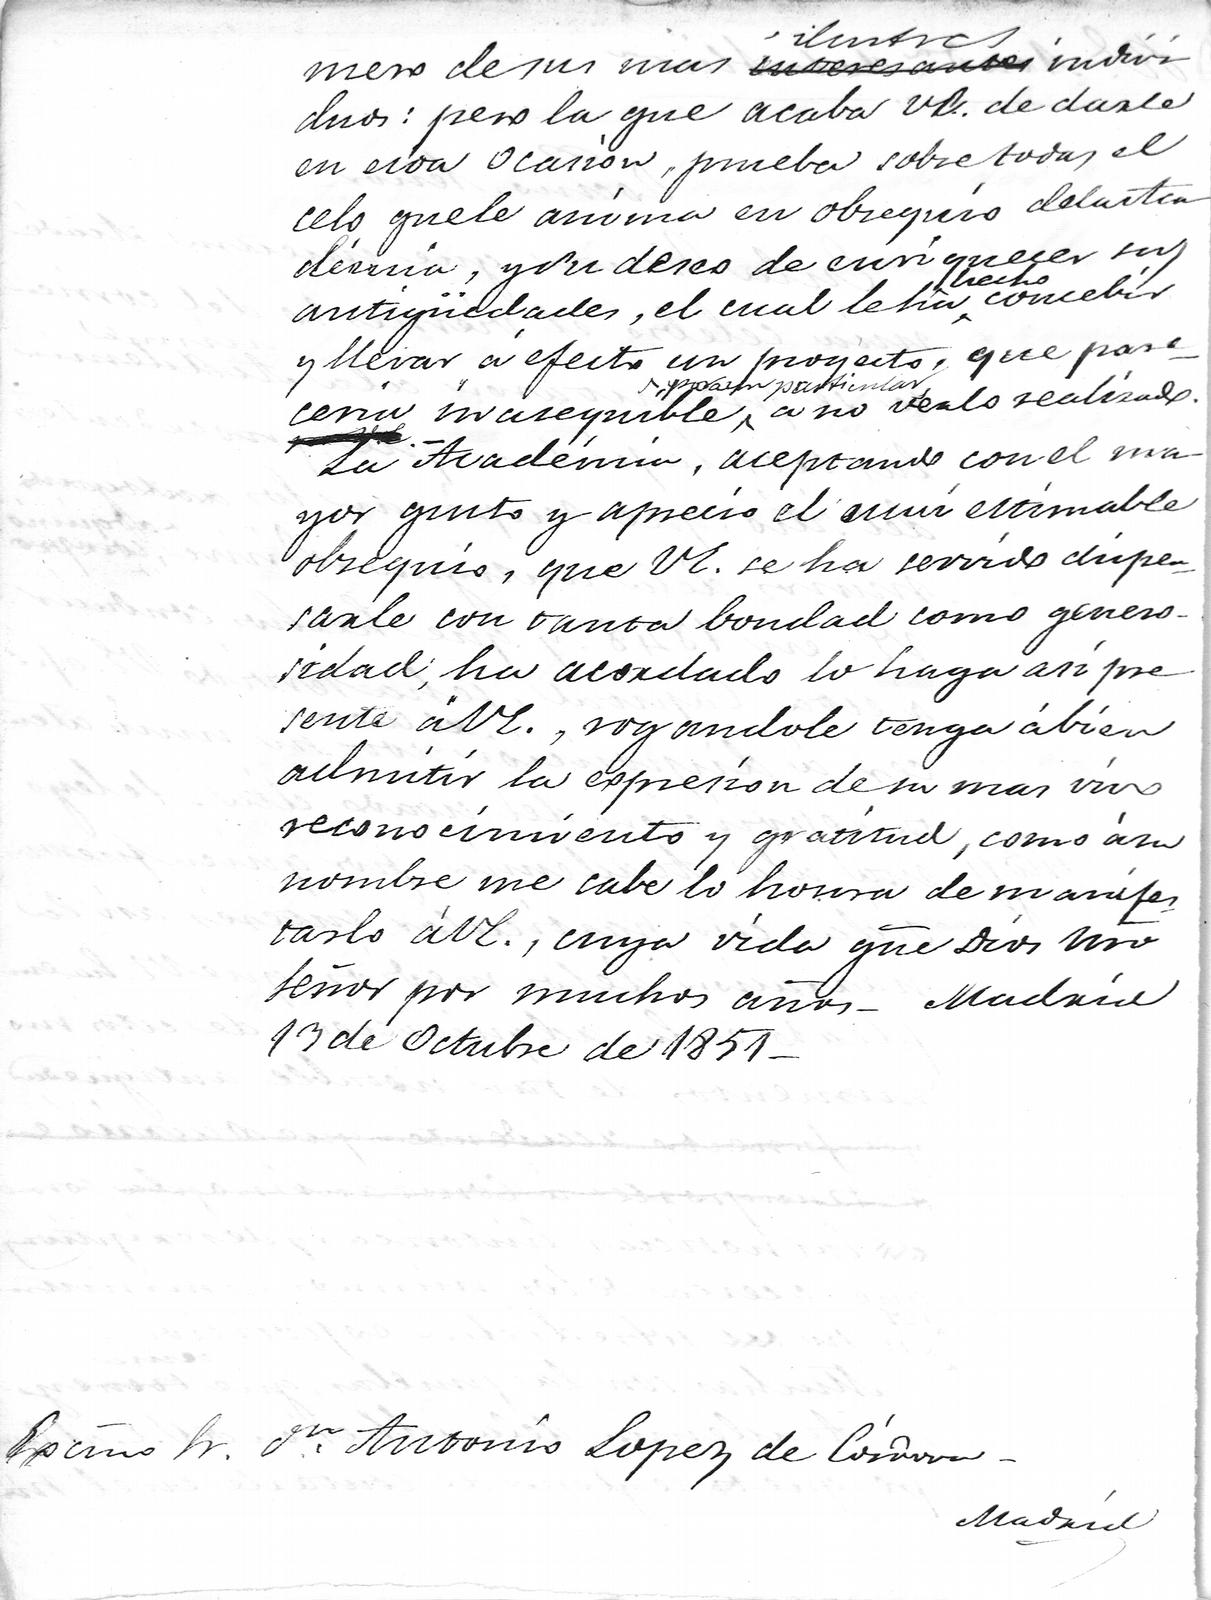 ilustres
mero de sus mas interesantes indivi
duos: pero la que acaba VE. de darle
en esta ocasion, prueba sobre todas el
celo que le anima en obsequio de la Aca
démia, y su deseo de enriquecer sus
antigüedades, el cual le ha hecho concebir
y llevar á efecto un proyecto, que pare-
ceria inasequible, para un particular, a no verlo realizado.
La Académia, aceptando con el ma-
yor gusto y aprecio el muy estimable
obsequio, que VE. se ha servido dispen-
sarle con tanta bondad como genero-
sidad, ha acordado lo haga asi pre
sente á VE., rogandole tenga á bien
admitir la expresion de su mas vivo
reconocimiento y gratitud, como á su
nombre me cabe la honra de manifes
tarlo á VE., cuya vida gũe Dios nrõ
señor por muchos años_ Madrid
13 de Octubre de 1851_
Excmo Sr. Dn. Antonio Lopez de Córdova_
Madrid